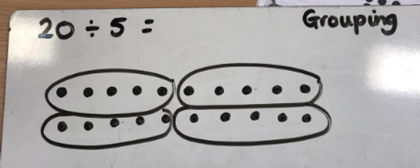 20 ÷ 5 =
Grouping